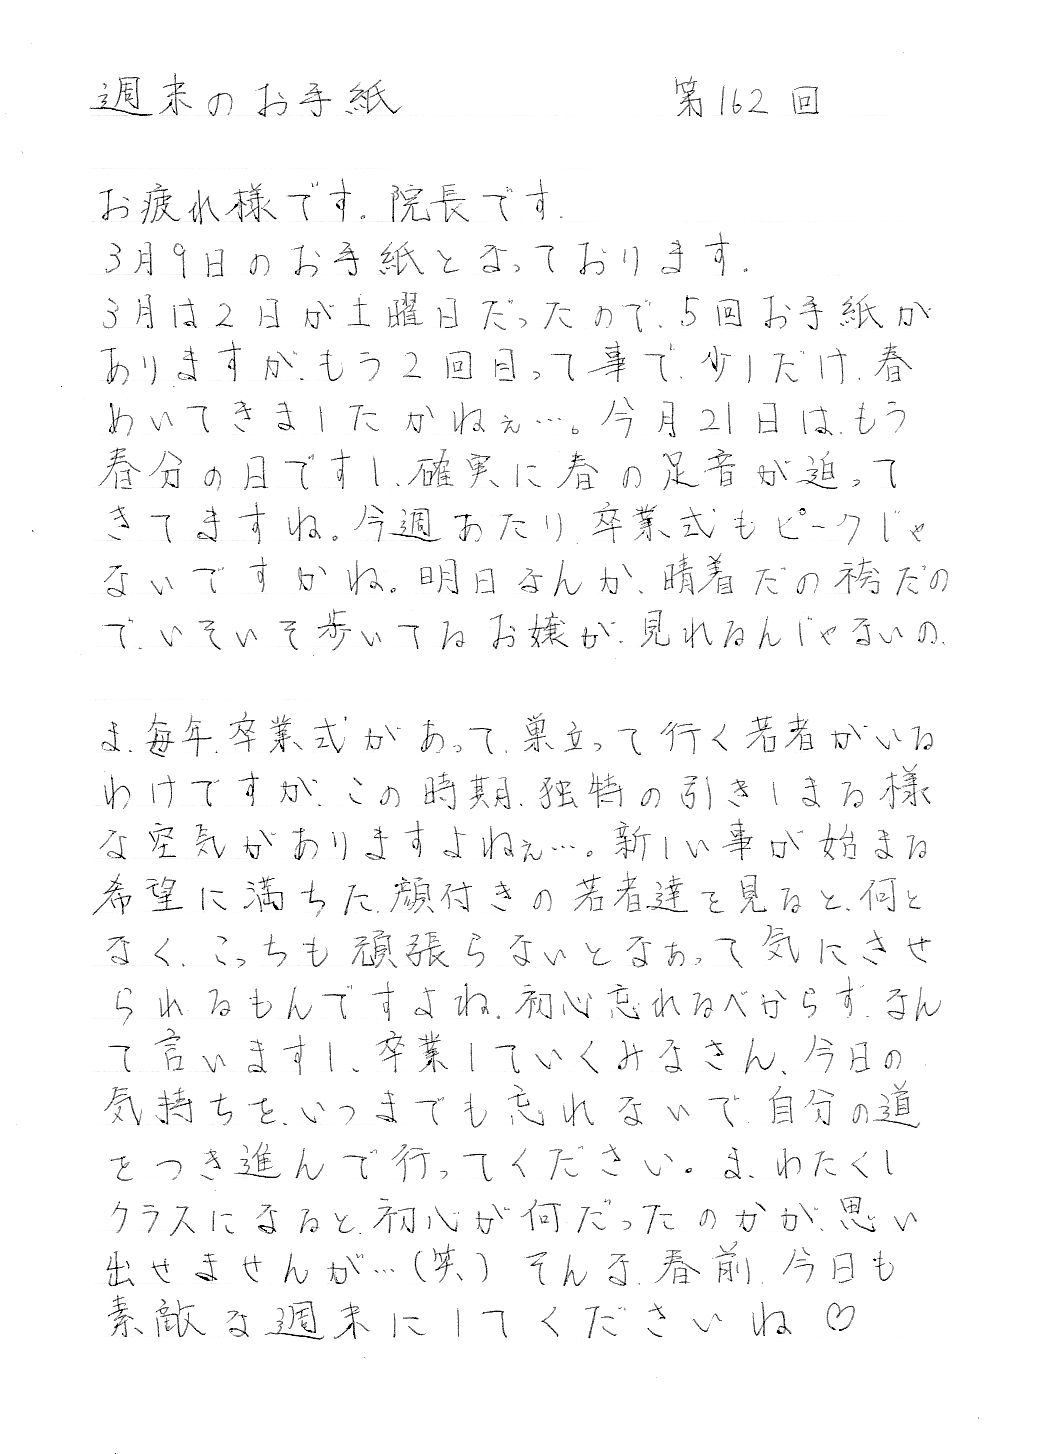 週末のお手紙 第162回
お疲れ様です。院長です。
3月9日のお手紙となっております。
3月は2日が土曜日だったので、5回お手紙が
ありますが、もう2回目って事で、少しだけ、春
めいてきましたかねぇ…。今月21日は、もう
春分の日ですし、確実に春の足音が迫って
きてますね。今週あたり、卒業式もピークじゃ
ないですかね。明日なんか、晴着だの袴だの
で、いそいそ歩いてるお嬢が、見れるんじゃないの、
ま、毎年、卒業式があって、巣立って行く若者がいる
わけですが、この時期、独特の引きしまる様
な空気がありますよねぇ…。新しい事が始まる
希望に満ちた、顔付きの若者達を見ると、何と
なく、こっちも頑張らないとなぁって気にさせ
られるもんですよね、初心忘れるべからず、なん
て言いますし、卒業していくみなさん、今日の
気持ちを、いつまでも忘れないで、自分の道
をつき進んで行ってください。ま、わたくし
クラスになると、初心が何だったのかが、思い
出せませんが…(笑)そんな、春前、今日も
素敵な週末にしてくださいね♡